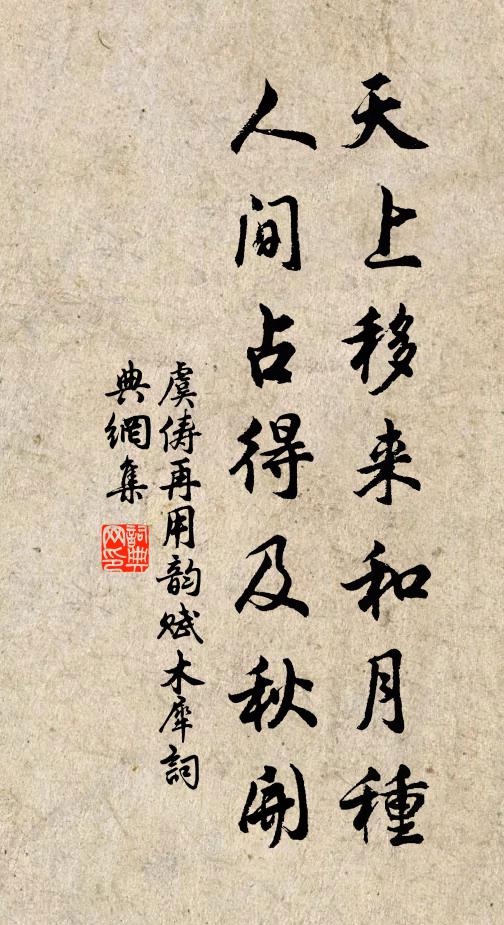 天上移来和月種
人间占得及秋開
虞儔再用韵赋木犀詞
典網集
詞典
网印